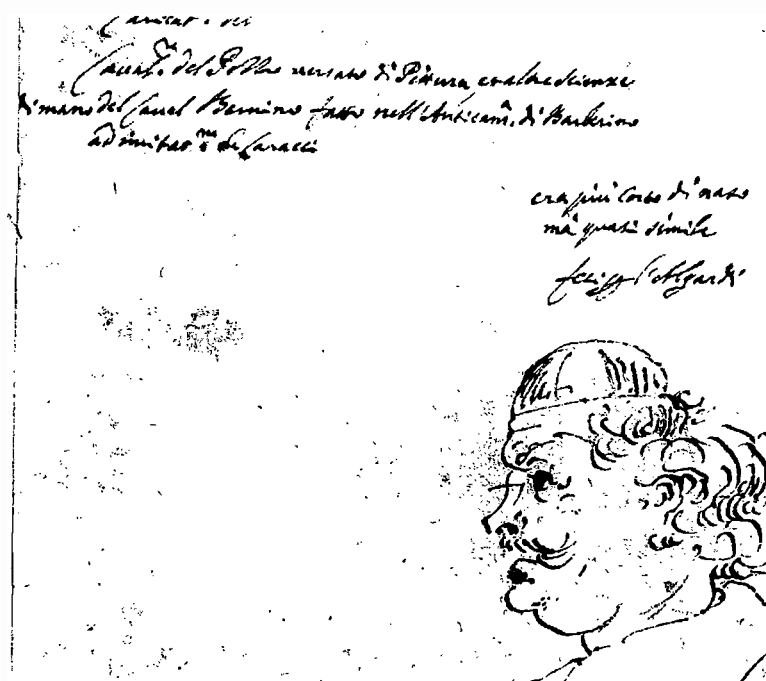 Caricat.
Caval.re del Pozzo versato di Pittura, et altre scienze
di mano del Caval Bernino fatto nell'Anticam.a di Barberino
ad imitat.ne de Caracci
era più corto di naso
mà quasi simile
l'Algardi